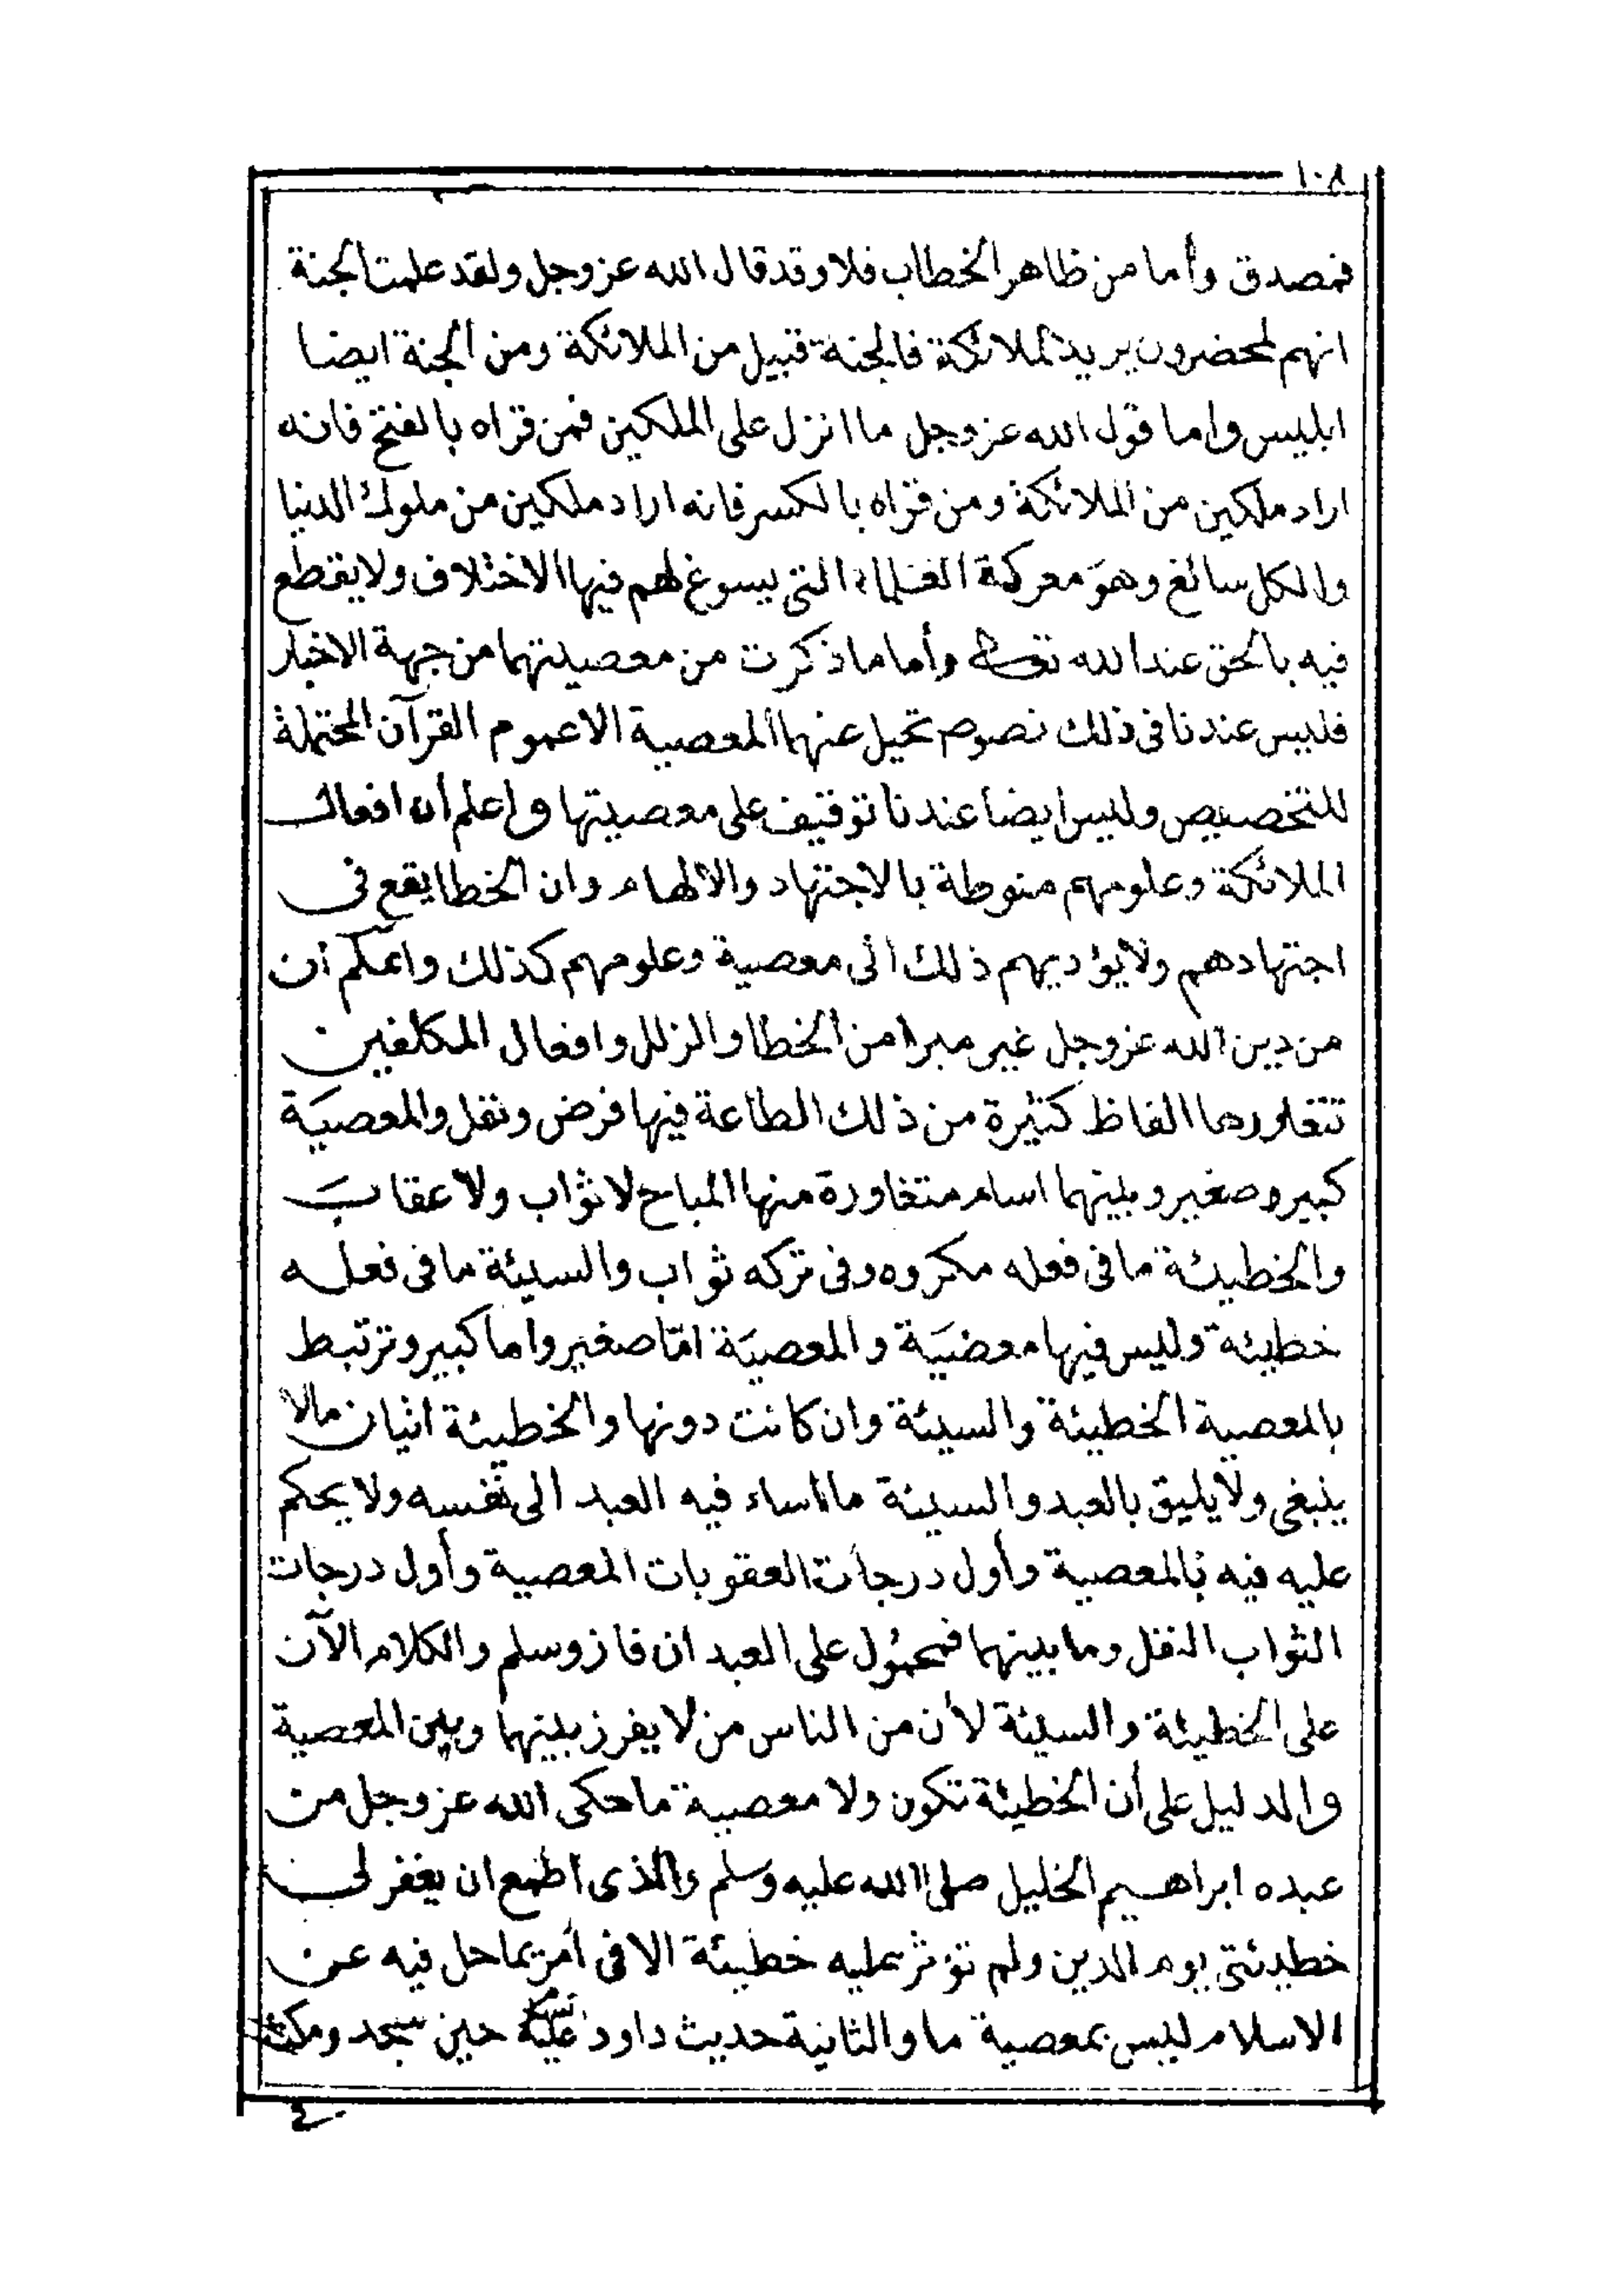 ١٠٨
فمصدق وأما من ظاهر الخطاب فلا وقد قال الله عز وجل ولقد علمت الجنة
انهم لمحضرون يريد الملائكة فالجنة قبيل من الملائكة ومن الجنة ايضا
ابليس واما قول الله عز وجل ما انزل على الملكين فمن قراه بالفتح فانه
اراد ملكين من الملائكة ومن قراه بالكسر فانه اراد ملكين من ملوك الدنيا
والكل سائغ وهو معركة العلماء التي يسوغ لهم فيها الاختلاف ولا يقطع
فيه بالحق عند الله تعالى وأما ما ذكرت من معصيتهما من جهة الاخبار
فليس عندنا في ذلك نصوص تحيل عنها المعصية الا عموم القرآن المحتملة
للتخصيص وليس ايضا عندنا توقيف على معصيتها واعلم أن افعال
الملائكة وعلومهم منوطة بالاجتهاد والالهام وان الخطا يقع في
اجتهادهم ولا يؤديهم ذلك الى معصية وعلومهم كذلك أن
من دين الله عز وجل غير مبرا من الخطا والزلل وافعال المكلفين
تتعاورها الفاظ كثيرة من ذلك الطاعة فيها فرض ونفل والمعصية
كبير وصغير وبينهما اسام متغاورة منها المباح لا ثواب ولا عقاب
والخطيئة ما في فعله مكروه وفي تركه ثواب والسيئة ما في فعله
خطيئة وليس فيها معصية والمعصية اما صغير واما كبير وترتبط
بالمعصية الخطيئة والسيئة وان كانت دونها والخطيئة اتيان مالا
ينبغي ولا يليق بالعبد والسيئة ما اساء فيه العبد الى نفسه ولا يحكم
عليه فيه بالمعصية وأول درجات العقوبات المعصية وأول درجات
الثواب النفل وما بينهما فمحمول على العبد ان فاز وسلم والكلام الآن
على الخطيئة والسيئة لأن من الناس من لا يفرز بينهما وبين المعصية
والدليل على أن الخطيئة تكون ولا معصية ما حكى الله عز وجل من
عبده ابراهيم الخليل صلى الله عليه وسلم والذي اطمع ان يغفر لي
خطيئتي يوم الدين ولم تؤثر عليه خطيئة الا في أمر بما حل فيه عن
الاسلام ليس بمعصية ما والثانية حديث داود عليه السلام حين سجد ومكث